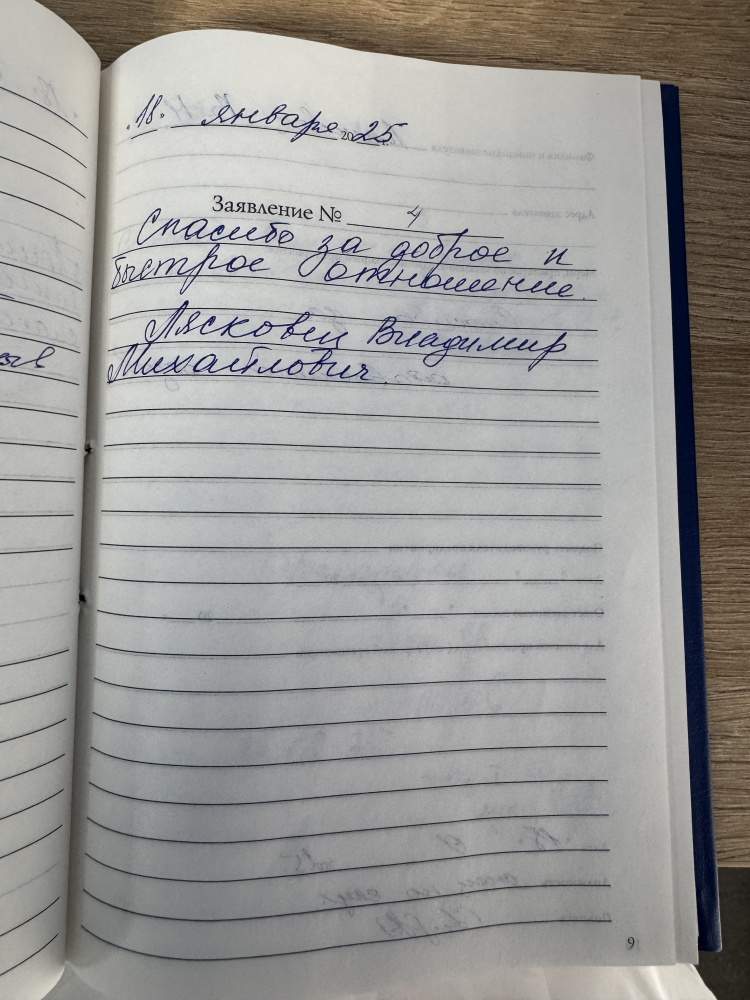 "18" января 2025
Заявление № 4
Спасибо за доброе и
быстрое отношение.
Лясковец Владимир
Михайлович.
9